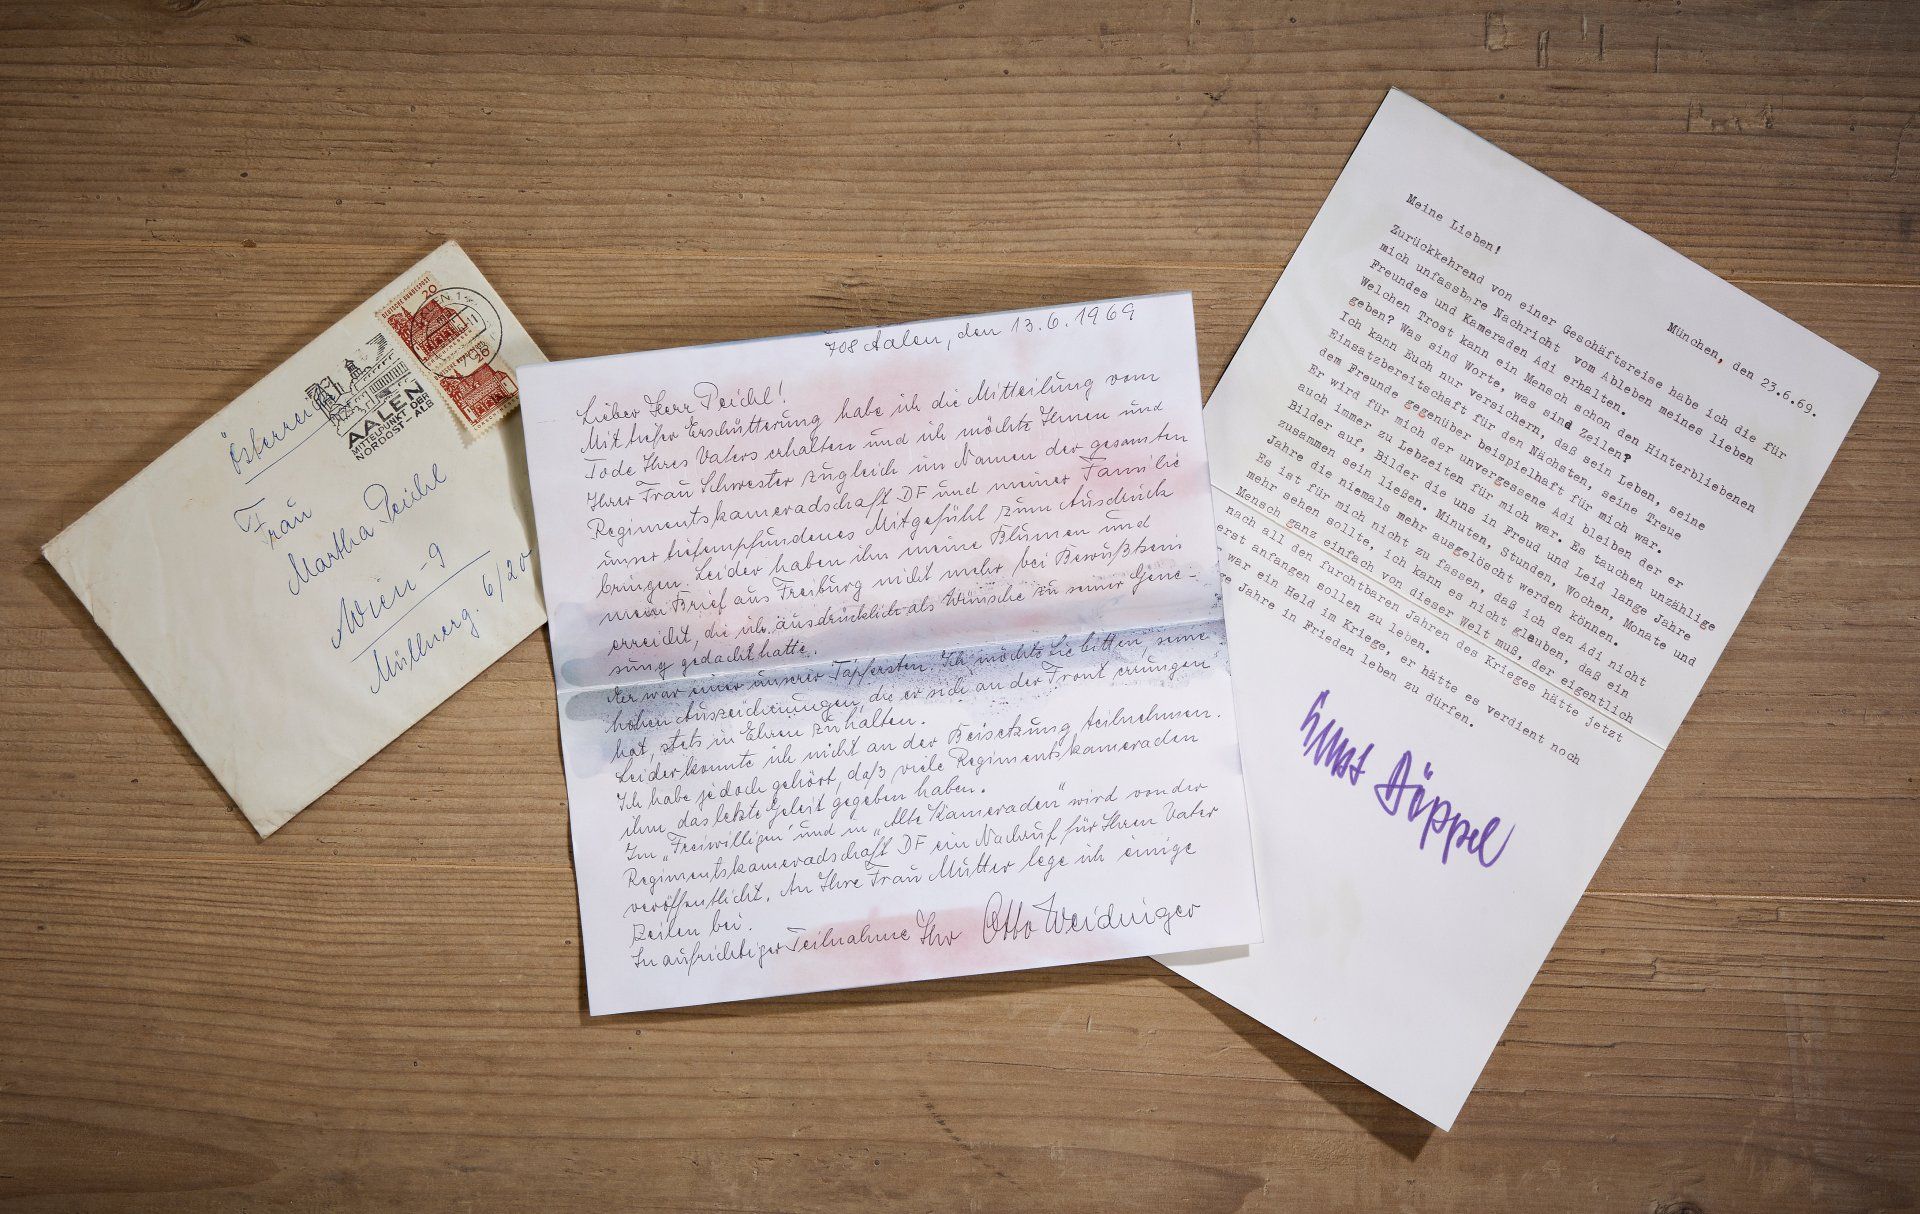 Österreich
AALEN
MITTELPUNKT DER
NORDOST-ALB
DEUTSCHE BUNDESPOST
20
20
Frau
Martha Peichl
Wien-9
Müllnerg. 6/20
708 Aalen, den 13.6.1969
Lieber Herr Peichl!
Mit tiefer Erschütterung habe ich die Mitteilung vom
Tode Ihres Vaters erhalten und ich möchte Ihnen und
Ihrer Frau Schwester zugleich im Namen der gesamten
Regimentskameradschaft DF und meiner Familie
unser tiefempfundenes Mitgefühl zum Ausdruck
bringen. Leider haben ihn meine Blumen und
mein Brief aus Freiburg nicht mehr bei Bewußtsein
erreicht, die ich ausdrücklich als Wünsche zu seiner Gene-
sung gedacht hatte.
Er war einer unserer Tapfersten. Ich möchte Sie bitten, seine
hohen Auszeichnungen, die er sich an der Front errungen
hat, stets in Ehren zu halten.
Leider konnte ich nicht an der Beisetzung teilnehmen.
Ich habe jedoch gehört, daß viele Regimentskameraden
ihm das letzte Geleit gegeben haben.
Im „Freiwilligen" und in „Alte Kameraden" wird von der
Regimentskameradschaft DF ein Nachruf für Ihren Vater
veröffentlicht. An Ihre Frau Mutter lege ich einige
Zeilen bei.
In aufrichtiger Teilnahme Ihr Otto Weidinger
München, den 23.6.69.
Meine Lieben!
Zurückkehrend von einer Geschäftsreise habe ich die für
mich unfassbare Nachricht vom Ableben meines lieben
Freundes und Kameraden Adi erhalten.
Welchen Trost kann ein Mensch schon den Hinterbliebenen
geben? Was sind Worte, was sind Zeilen?
Ich kann Euch nur versichern, daß sein Leben, seine
Einsatzbereitschaft für den Nächsten, seine Treue
dem Freunde gegenüber beispielhaft für mich war.
Er wird für mich der unvergessene Adi bleiben der er
auch immer zu Lebzeiten für mich war. Es tauchen unzählige
Bilder auf, Bilder die uns in Freud und Leid lange Jahre
zusammen sein ließen. Minuten, Stunden, Wochen, Monate und
Jahre die niemals mehr ausgelöscht werden können.
Es ist für mich nicht zu fassen, daß ich den Adi nicht
mehr sehen sollte, ich kann es nicht glauben, daß ein
Mensch ganz einfach von dieser Welt muß, der eigentlich
nach all den furchtbaren Jahren des Krieges hätte jetzt
erst anfangen sollen zu leben.
war ein Held im Kriege, er hätte es verdient noch
ge Jahre in Frieden leben zu dürfen.